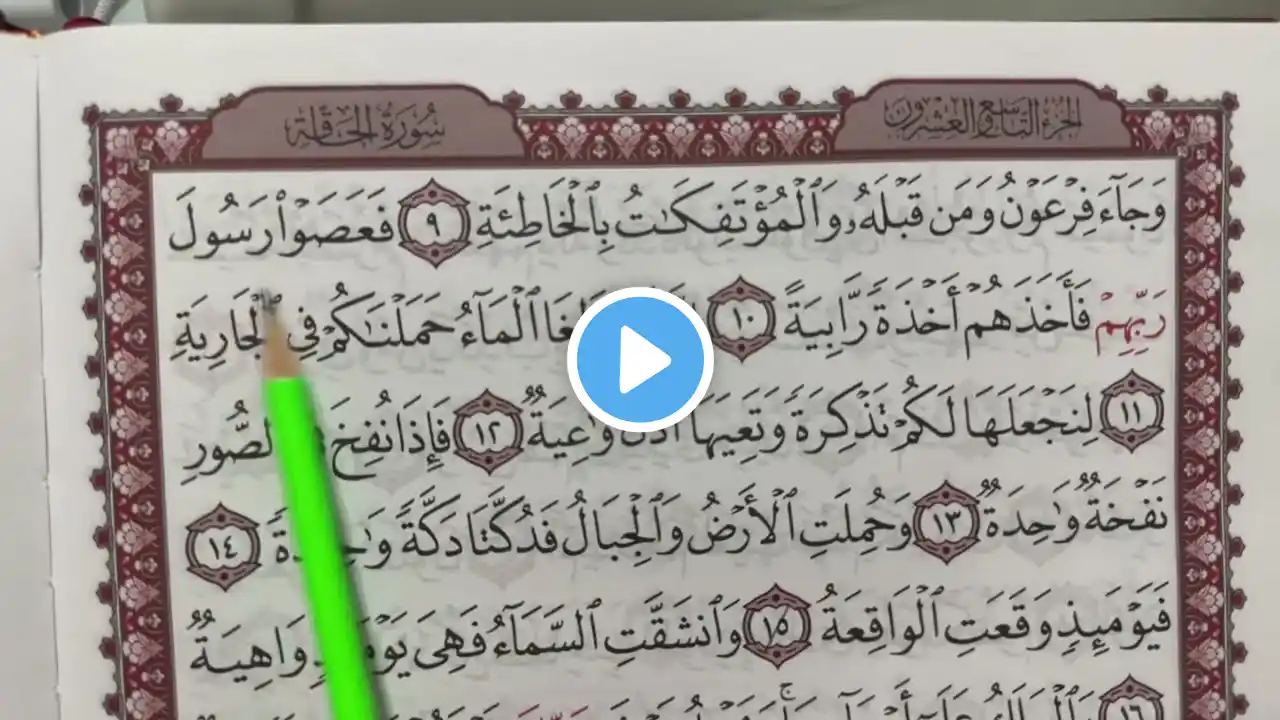 الجزء التاسع والعشرون
سورة الحاقة
وَجَآءَ فِرْعَوْنُ وَمَن قَبْلَهُۥ وَٱلْمُؤْتَفِكَـٰتُ بِٱلْخَاطِئَةِ ٩ فَعَصَوْا۟ رَسُولَ
رَبِّهِمْ فَأَخَذَهُمْ أَخْذَةً رَّابِيَةً ١٠ ٱلْمَآءُ حَمَلْنَـٰكُمْ فِى ٱلْجَارِيَةِ
١١ لِنَجْعَلَهَا لَكُمْ تَذْكِرَةً وَتَعِيَهَآ أُذُنٌ وَٰعِيَةٌ ١٢ فَإِذَا نُفِخَ ٱلصُّورِ
نَفْخَةٌ وَٰحِدَةٌ ١٣ وَحُمِلَتِ ٱلْأَرْضُ وَٱلْجِبَالُ فَدُكَّتَا دَكَّةً وَٰحِدَةً ١٤
فَيَوْمَئِذٍ وَقَعَتِ ٱلْوَاقِعَةُ ١٥ وَٱنشَقَّتِ ٱلسَّمَآءُ فَهِىَ يَوْمَئِذٍ وَاهِيَةٌ
١٦ وَٱلْمَلَكُ عَلَىٰٓ